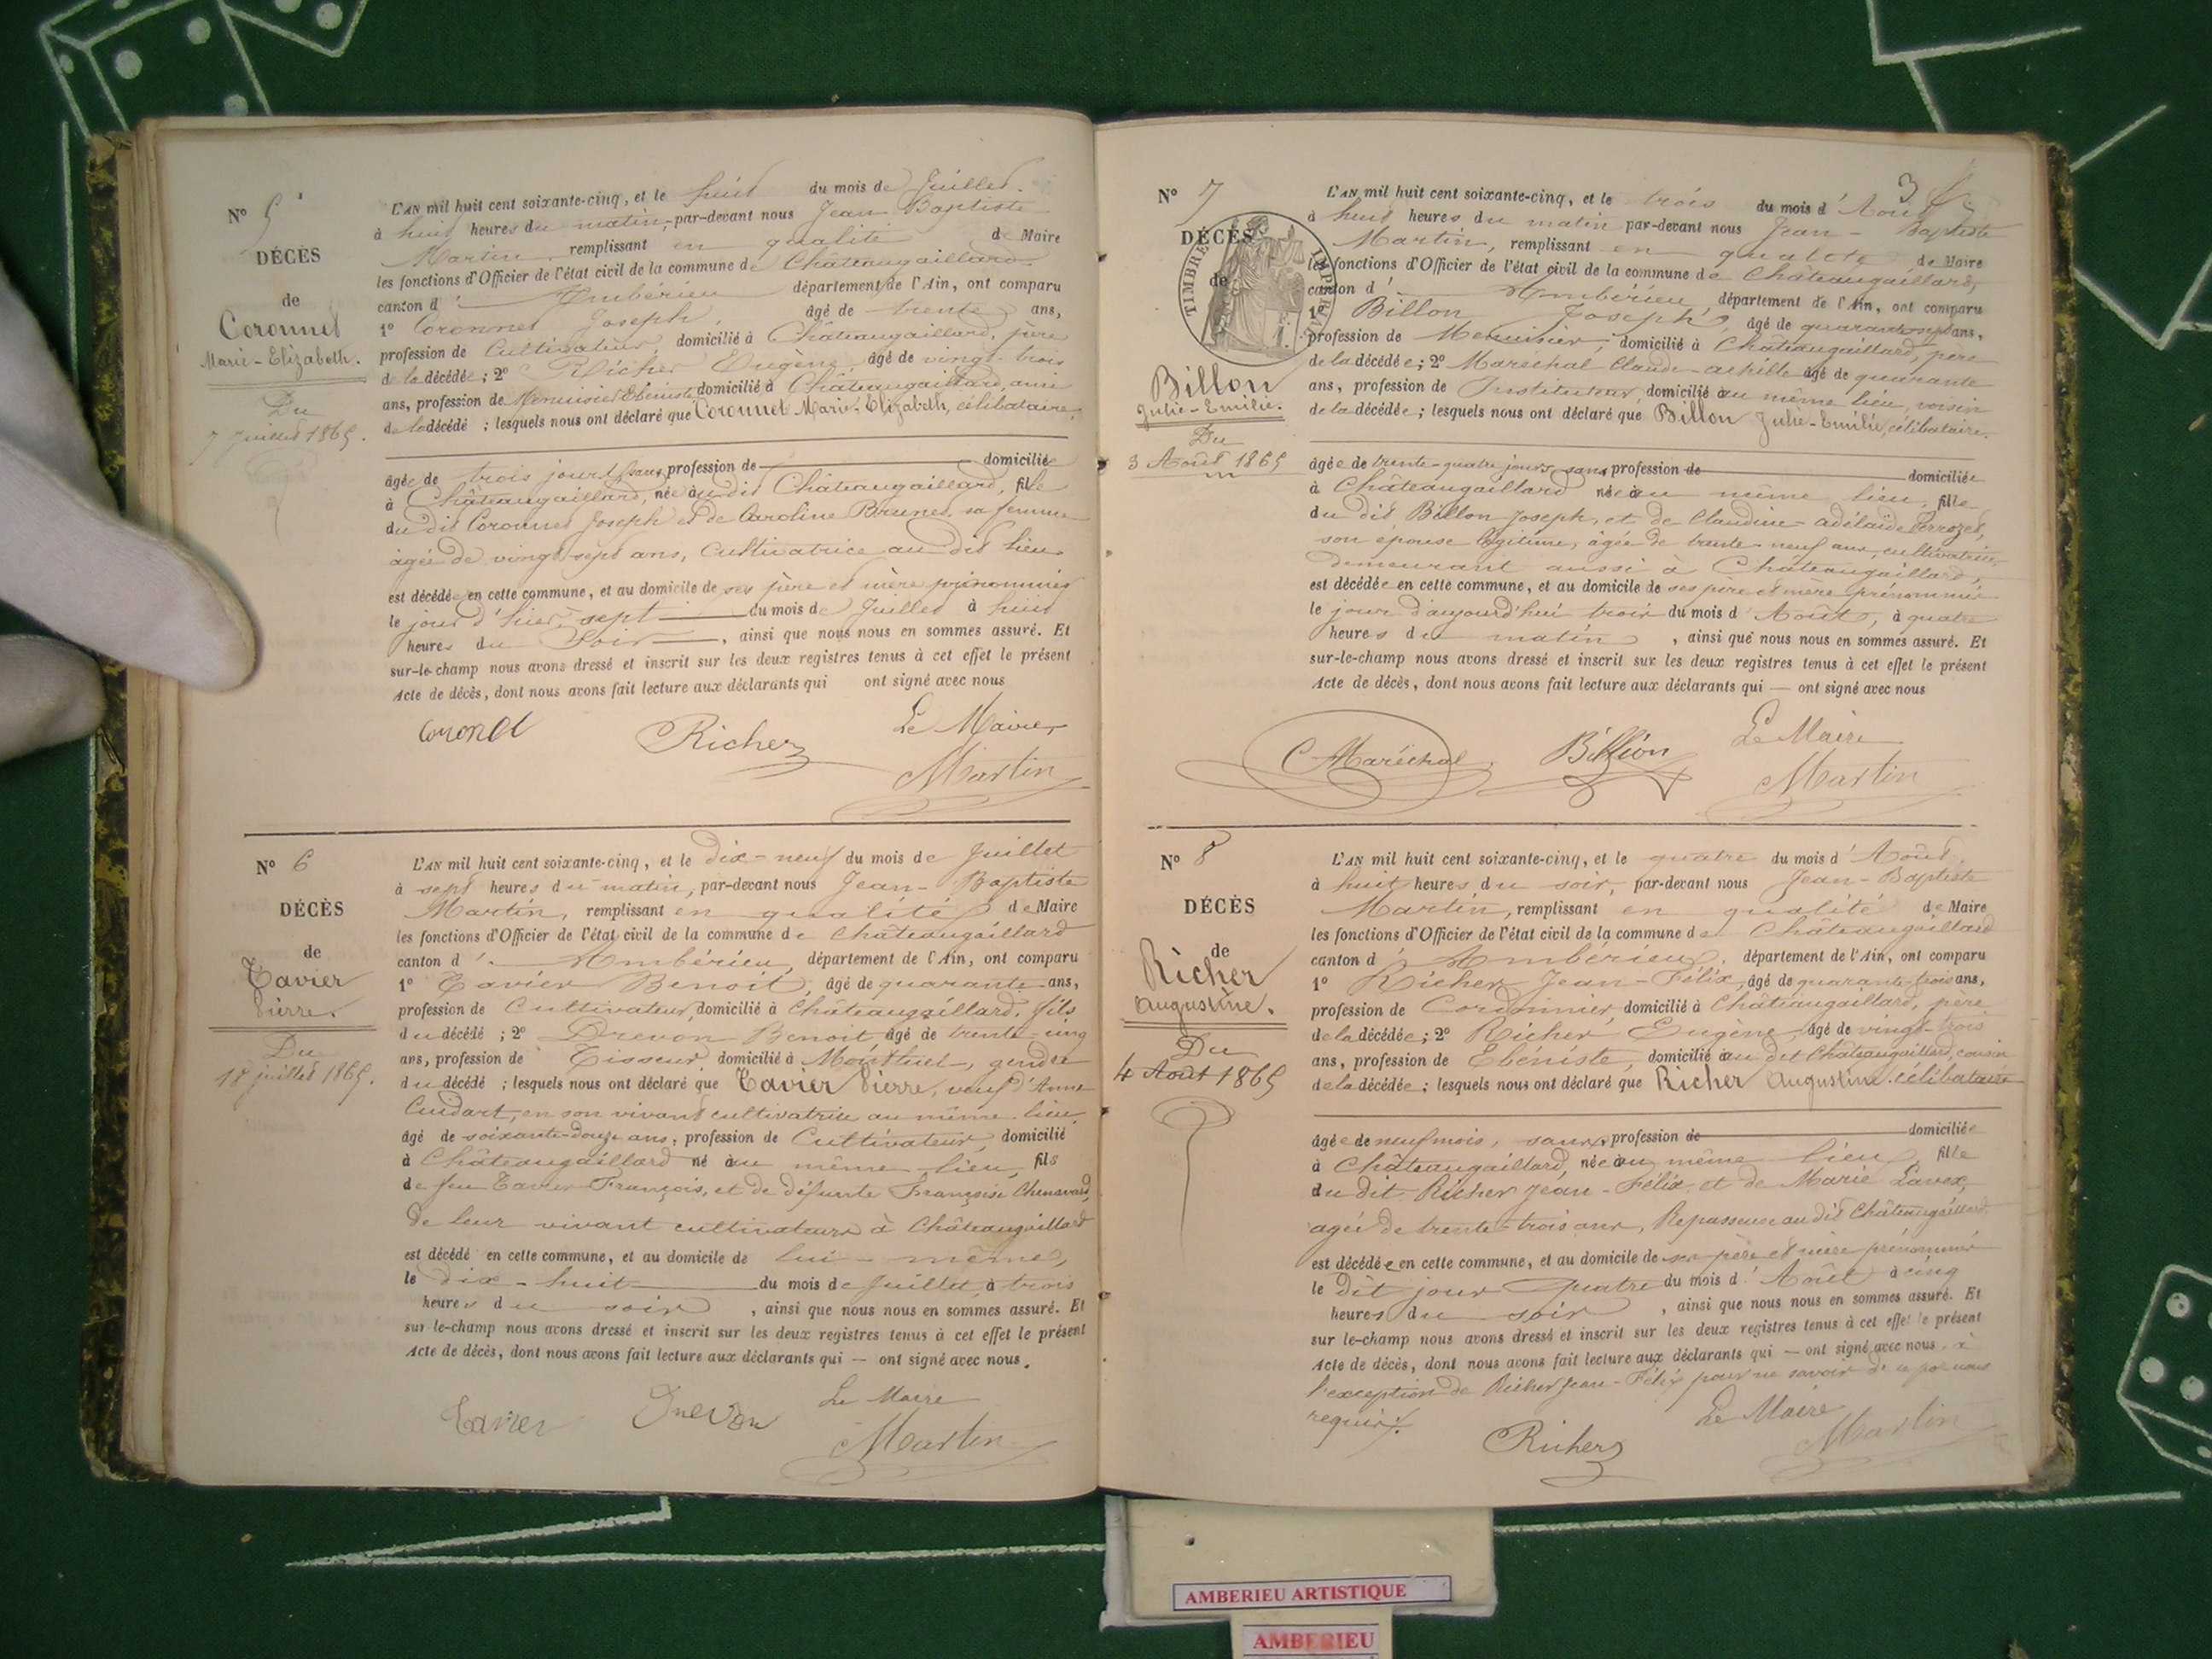 N° 5
DÉCÈS
de
Coronnet
Marie-Elizabeth.
Du
7 Juillet 1865.
L'AN mil huit cent soixante-cinq, et le huit du mois de Juillet.
à huit heures du matin, par-devant nous Jean Baptiste
Martin, remplissant en qualité de Maire
les fonctions d'Officier de l'état civil de la commune de Châteaugaillard
canton d' Ambérieu département de l'Ain, ont comparu
1° Coronnet Joseph, âgé de trente ans,
profession de Cultivateur domicilié à Châteaugaillard, père
de la décédée ; 2° Richer Eugène âgé de vingt-trois
ans, profession de Menuisier Ebéniste domicilié à Châteaugaillard, ami
de la décédé ; lesquels nous ont déclaré que Coronnet Marie-Elizabeth, célibataire,
âgée de trois jours, sans profession de domiciliée
à Châteaugaillard, née au dit Châteaugaillard, fille
du dit Coronnet Joseph et de Caroline Brunet, sa femme
âgée de vingt-sept ans, Cultivatrice au dit lieu
est décédée en cette commune, et au domicile de ses père et mère prénommés
le jour d'hier, sept du mois de Juillet à huit
heures du Soir, ainsi que nous nous en sommes assuré. Et
sur-le-champ nous avons dressé et inscrit sur les deux registres tenus à cet effet le présent
Acte de décès, dont nous avons fait lecture aux déclarants qui ont signé avec nous
Coronet Richer Le Maire
Martin
N° 6
DÉCÈS
de
Tavier
Pierre.
Du
18 juillet 1865.
L'AN mil huit cent soixante-cinq, et le dix-neuf du mois de Juillet
à sept heures du matin, par-devant nous Jean-Baptiste
Martin, remplissant en qualité de Maire
les fonctions d'Officier de l'état civil de la commune de Châteaugaillard
canton d' Ambérieu, département de l'Ain, ont comparu
1° Tavier Benoit, âgé de quarante ans,
profession de Cultivateur, domicilié à Châteaugaillard, fils
du décédé ; 2° Drevon Benoit âgé de trente-cinq
ans, profession de Tisseur, domicilié à Montluel, gendre
du décédé ; lesquels nous ont déclaré que Tavier Pierre, veuf d'Anne
Cuidart, en son vivant cultivatrice au même lieu
âgé de soixante-douze ans, profession de Cultivateur, domicilié
à Châteaugaillard né au même lieu, fils
de feu Tavier François, et de défunte Françoise Chenavard,
de leur vivant cultivateurs à Châteaugaillard
est décédé en cette commune, et au domicile de lui-même,
le dix-huit du mois de Juillet, à trois
heures du soir, ainsi que nous nous en sommes assuré. Et
sur-le-champ nous avons dressé et inscrit sur les deux registres tenus à cet effet le présent
Acte de décès, dont nous avons fait lecture aux déclarants qui — ont signé avec nous.
Tavier Drevon Le Maire
Martin
3
N° 7
DÉCÈS
de
TIMBRE IMPÉRIAL
Billon
Julie-Emilie.
Du
3 Août 1865
L'AN mil huit cent soixante-cinq, et le trois du mois d'Août
à huit heures du matin par-devant nous Jean-Baptiste
Martin, remplissant en qualité de Maire
les fonctions d'Officier de l'état civil de la commune de Châteaugaillard,
canton d' Ambérieu, département de l'Ain, ont comparu
1° Billon Joseph, âgé de quarante-sept ans,
profession de Menuisier, domicilié à Châteaugaillard, père
de la décédée ; 2° Maréchal Claude-achille âgé de quarante
ans, profession de Instituteur, domicilié au même lieu, voisin
de la décédée ; lesquels nous ont déclaré que Billon Julie-Emilie, célibataire.
âgée de trente-quatre jours, sans profession de domiciliée
à Châteaugaillard née au même lieu, fille
du dit Billon Joseph, et de Claudine-adélaïde Perrozet,
son épouse légitime, âgée de trente-neuf ans, cultivatrice,
demeurant aussi à Châteaugaillard,
est décédée en cette commune, et au domicile de ses père et mère prénommés
le jour d'aujourd'hui trois du mois d'Août, à quatre
heures du matin, ainsi que nous nous en sommes assuré. Et
sur-le-champ nous avons dressé et inscrit sur les deux registres tenus à cet effet le présent
Acte de décès, dont nous avons fait lecture aux déclarants qui — ont signé avec nous
C Maréchal Billion Le Maire
Martin
N° 8
DÉCÈS
de
Richer
Augustine.
Du
4 Août 1865
L'AN mil huit cent soixante-cinq, et le quatre du mois d'Août,
à huit heures du soir, par-devant nous Jean-Baptiste
Martin, remplissant en qualité de Maire
les fonctions d'Officier de l'état civil de la commune de Châteaugaillard
canton d' Ambérieu, département de l'Ain, ont comparu
1° Richer Jean-Félix, âgé de quarante-trois ans,
profession de Cordonnier, domicilié à Châteaugaillard, père
de la décédée ; 2° Richer Eugène, âgé de vingt-trois
ans, profession de Ebéniste, domicilié au dit Châteaugaillard, cousin
de la décédée ; lesquels nous ont déclaré que Richer Augustine célibataire
âgée de neuf mois, sans profession de domiciliée
à Châteaugaillard, née au même lieu, fille
du dit Richer Jean-Félix et de Marie Lavex,
agée de trente-trois ans, Repasseuse au dit Châteaugaillard.
est décédée en cette commune, et au domicile de ses père et mère prénommés
le dit jour quatre du mois d'Août à cinq
heures du soir, ainsi que nous nous en sommes assuré. Et
sur le-champ nous avons dressé et inscrit sur les deux registres tenus à cet effet le présent
Acte de décès, dont nous avons fait lecture aux déclarants qui — ont signé avec nous, à
l'exception de Richer Jean-Félix pour ne savoir de ce par nous
requis.
Richer Le Maire
Martin
AMBERIEU ARTISTIQUE
AMBERIEU